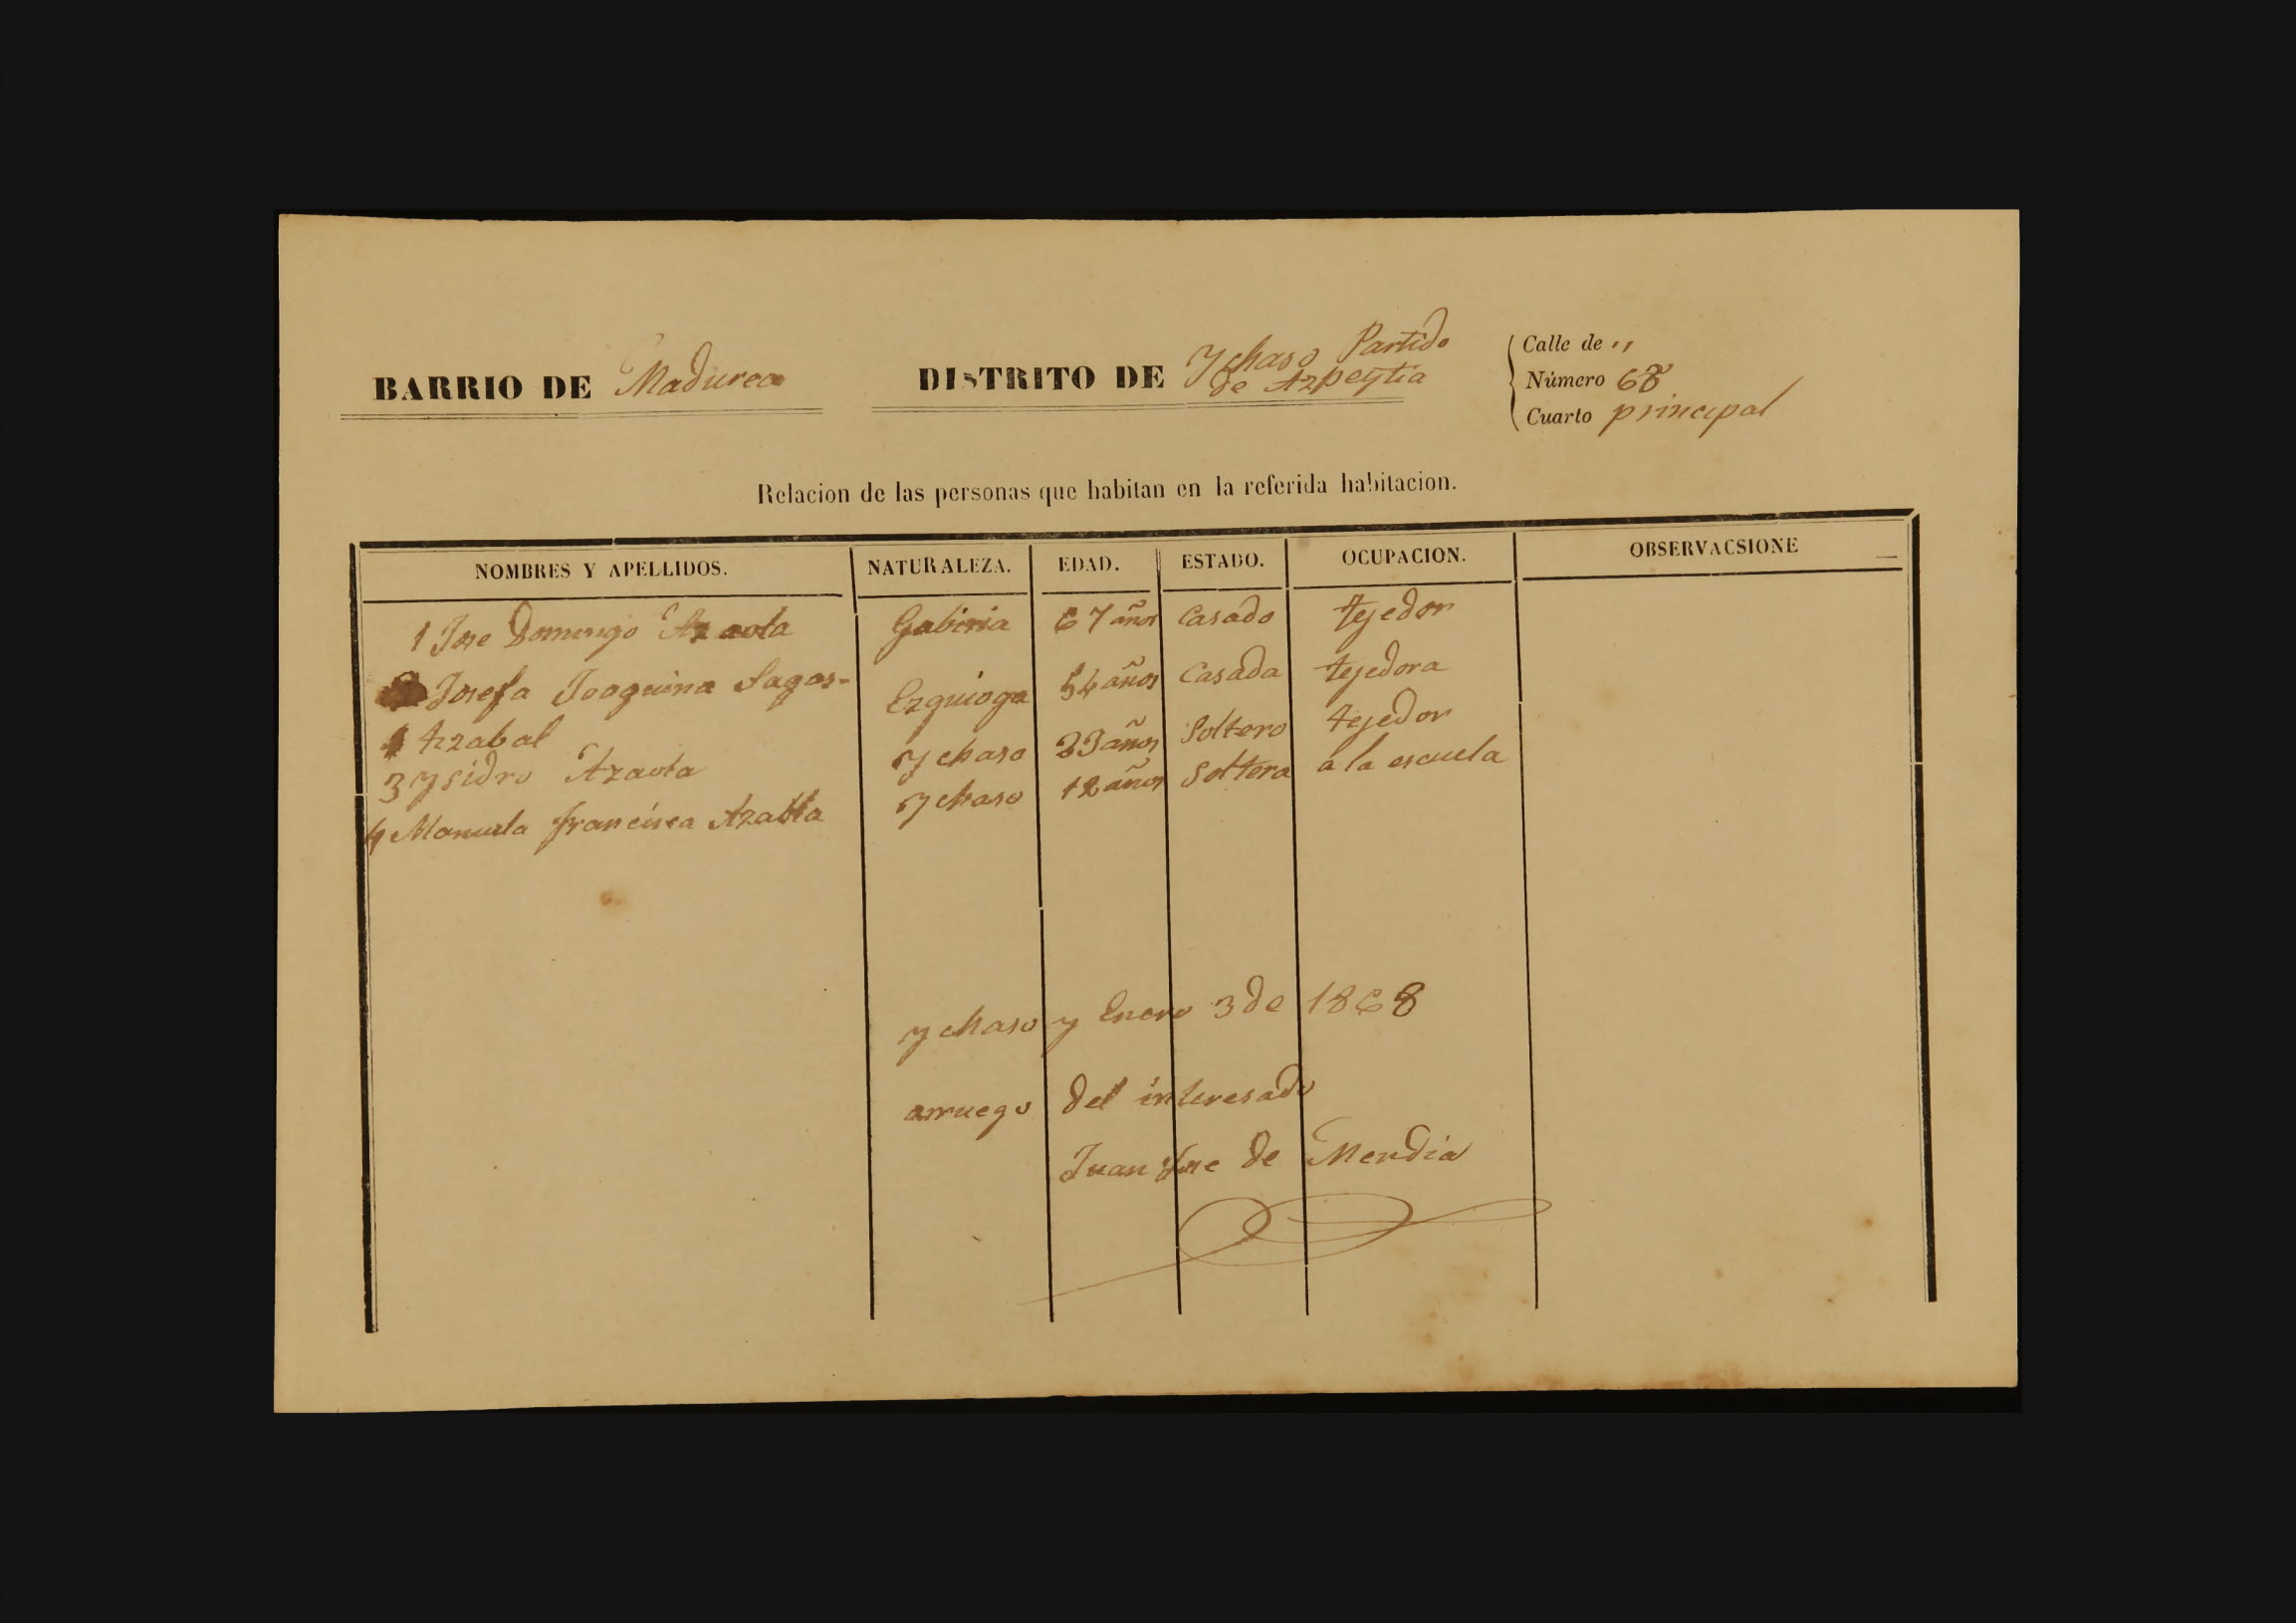 BARRIO DE Madurea
DISTRITO DE Ychaso Partido
de Azpeytia
Calle de "
Número 68
Cuarto principal
Relacion de las personas que habitan en la referida habitacion.
NOMBRES Y APELLIDOS. NATURALEZA. EDAD. ESTADO. OCUPACION. OBSERVACSIONE
1 Jose Domingo Azaola Gabiria 67 años Casado tejedor
Josefa Joaquina Sagas- Ezquioga 54 años Casada tejedora
tizabal
3 Ysidro Azaola Ychaso 23 años Soltero tejedor
4 Manuela francisca Azaola Ychaso 12 años Soltera á la escuela
ychaso y Enero 3 de 1868
arruego del interesado
Juan Jose de Mendia